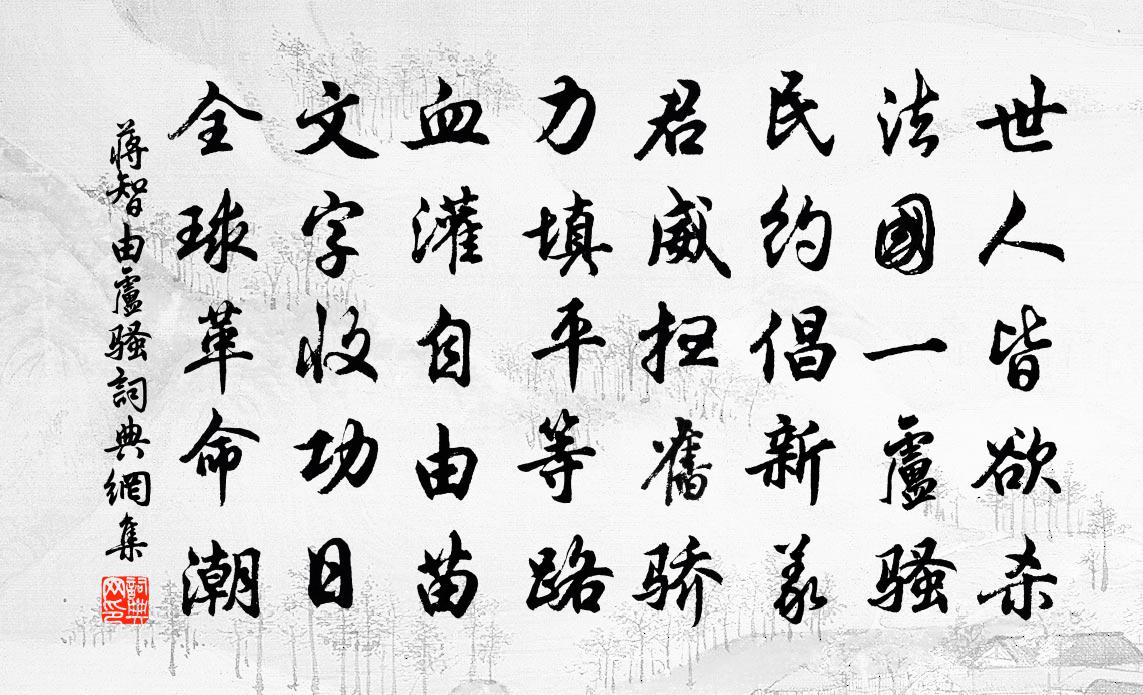 世人皆欲杀
法國一盧骚
民约倡新義
君威扫舊骄
力填平等路
血灌自由苗
文字收功日
全球革命潮
蒋智由盧骚詞典網集
詞典网印